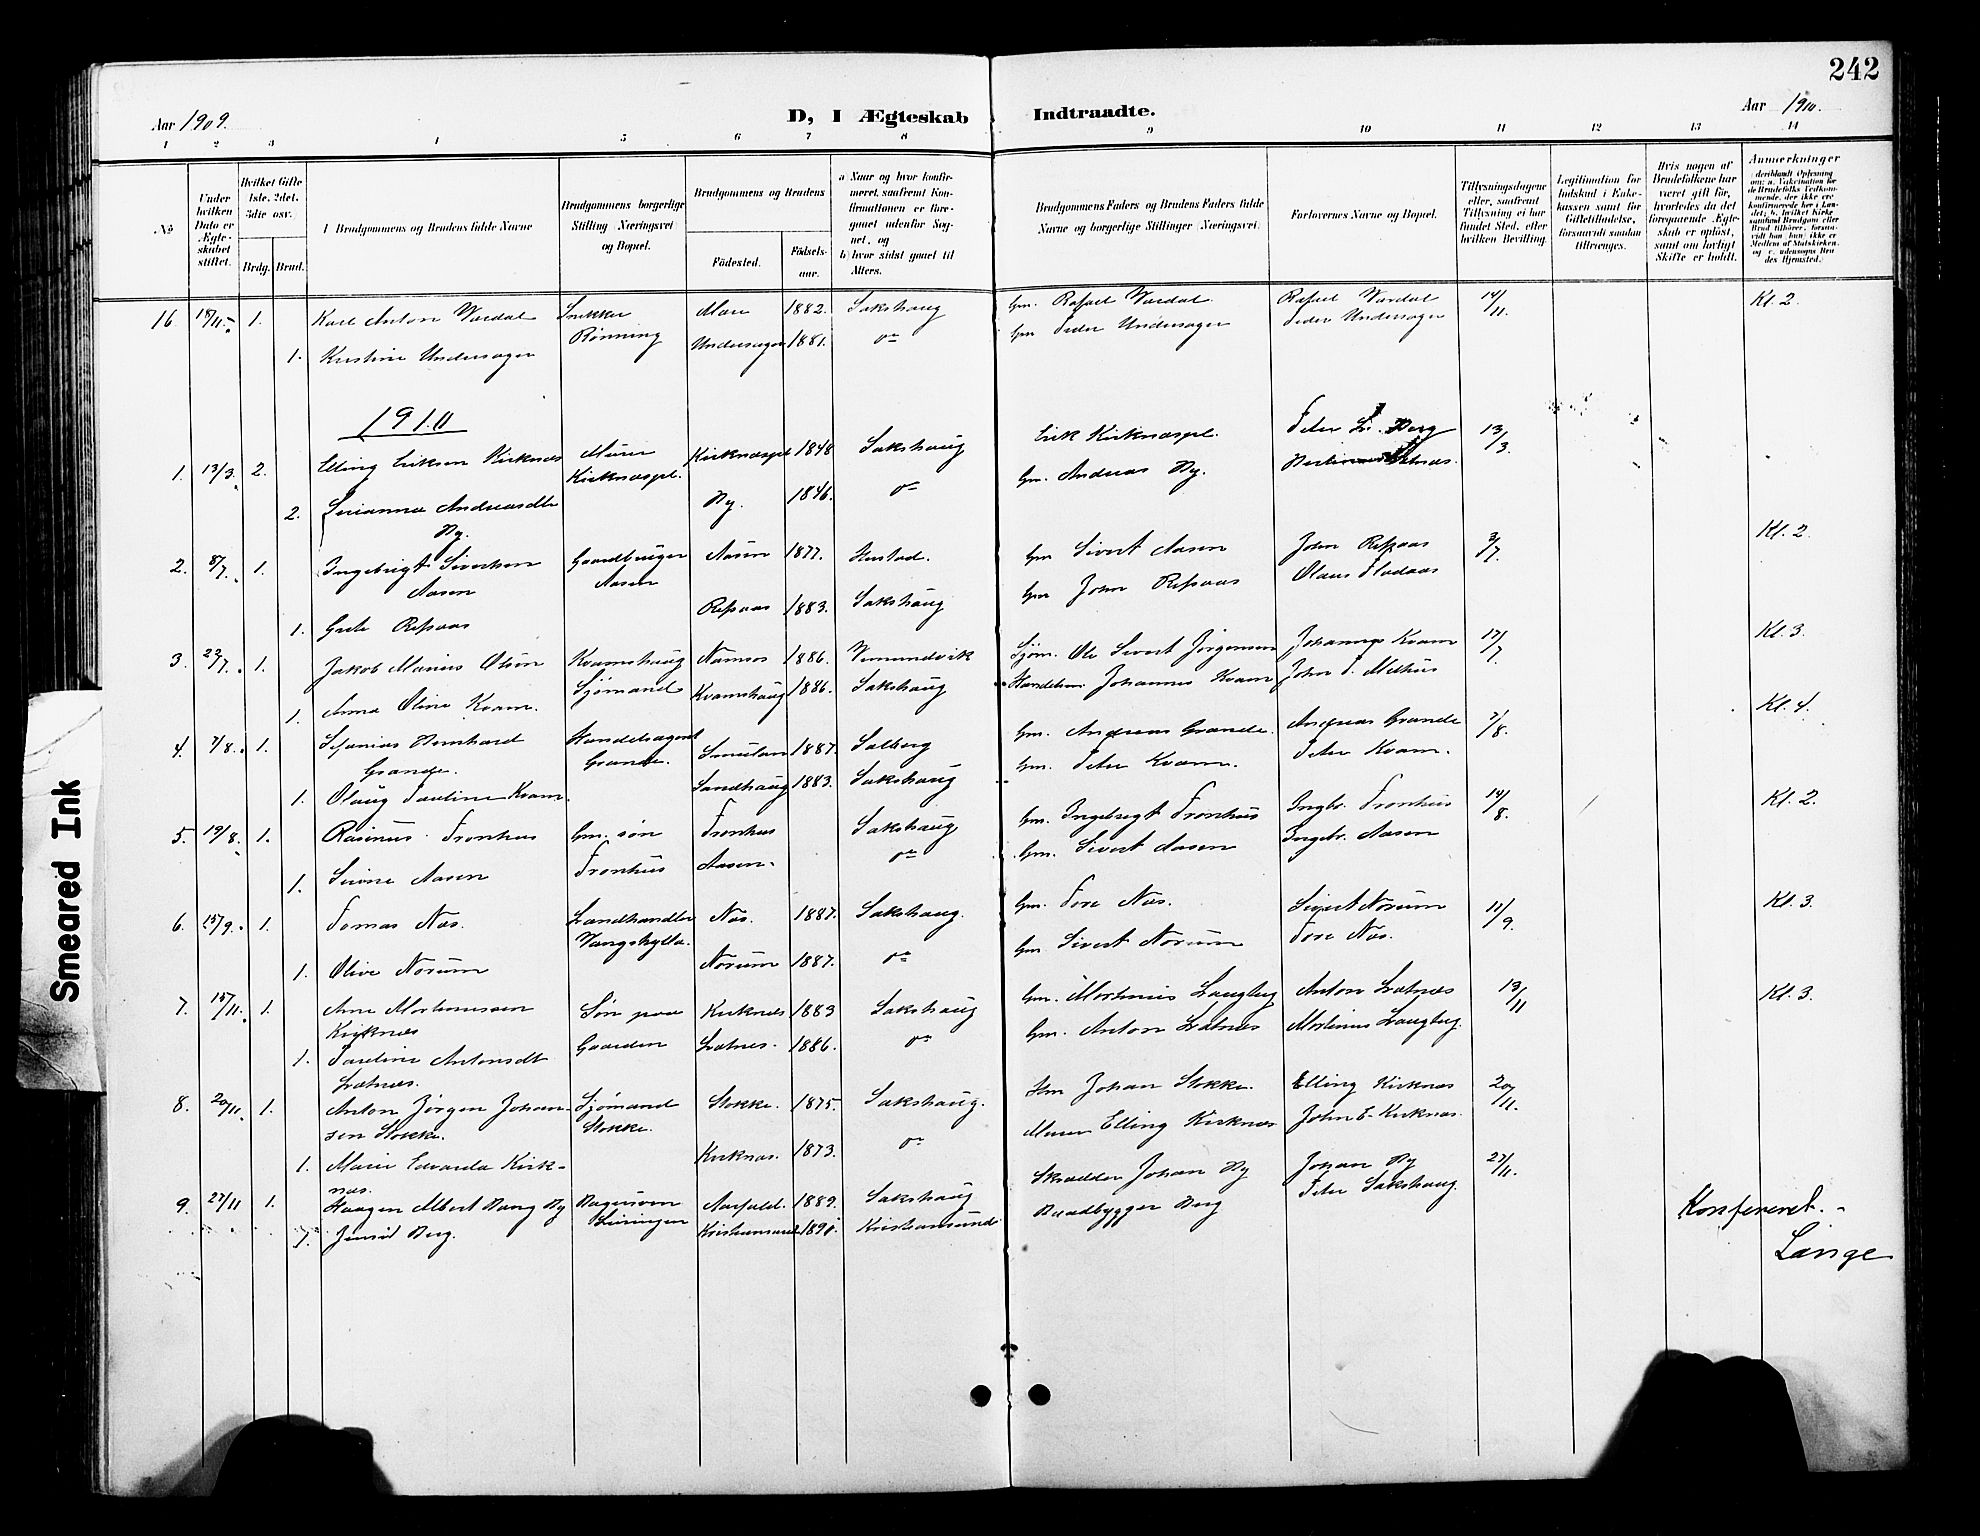 242
Aar 1909.
D, I Ægteskab Indtraadte.
Aar 1910.
1 2 3 4 5 6 7 8 9 10 11 12 13 14
No
Under hvilken Dato er Ægteskabet stiftet.
Hvilket Gifte 1ste, 2det, 3die osv.
Brdg. Brud.
Brudgommens og Brudens fulde Navne
Brudgommens borgerlige Stilling (Næringsvei) og Bopæl.
Brudgommens og Brudens
Födested.
Födselsaar.
a) Naar og hvor konfirmeret, saafremt Konfirmationen er foregaaet udenfor Sognet, og
b) hvor sidst gaaet til Alters.
Brudgommens Faders og Brudens Faders fulde Navne og borgerlige Stillinger (Næringsvei).
Forlovernes Navne og Bopæl.
Tillysningsdagene eller, saafremt Tillysning ei har fundet Sted, efter hvilken Bevilling.
Legitimation for Indskud i Enkekassen samt for Giftetilladelse, forsaavidt saadan tiltrænges.
Hvis nogen af Brudefolkene har været gift för, hvorledes da det foregaaende Ægteskab er oplöst, samt om lovligt Skifte er holdt.
Anmærkninger
16 18/11 1. Karl Anton Vardal Snekker Mare 1882. Sakshaug Gm. Rafael Vardal Rafael Vardal 14/11. Kl. 2.
Rönning
1. Kristine Undersager Undersager 1881. do Gm Peder Undersager Peder Undersager
1910
1. 13/3. 2. Elling Eriksen Kirknæs Murer Kirknæspl. 1848 Sakshaug Erik Kirknæspl. Peter L. Berg 13/3
Kirknæspl.
2. Andreasdtr By. By. 1846. do Gm. Andreas By.
2. 8/7. 1. Ingebrigt Sivertsen Aasen Gaardbruger Aasen Aasen 1877. Hustad. Gm Sivert Aasen John Refsaas 3/7. Kl. 2.
1. Grete Refsaas Refsaas 1883. Sakshaug Gm John Refsaas Olaus Flodaas
3. 23/7. 1. Jakob Marius Olsen Kvamshaug Sjömand Namsos 1886. Vemundvik Sjöm. Ole Sivert Jörgensen Johannes Kvam 17/7 Kl. 3.
1. Anna Oline Kvam. Kvamshaug 1886. Sakshaug Handelsm. Johannes Kvam John P. Melhus
4. 7/8. 1. Sefanias Bernhard Grande. Handelsagent Grande. 1887. Salberg Gm. Andreas Grande. Andreas Grande 7/8. Kl. 4.
1. Olaug Pauline Kvam. Sandhaug 1883. Sakshaug Gm. Peter Kvam. Peter Kvam.
5. 19/8. 1. Rasmus Fronhus Gm. sön Fronhus Fronhus Sakshaug Gm. Ingebrigt Fronhus Ingbr. Fronhus 14/8. Kl. 2.
1. Aasen Aasen. do Gm. Sivert Aasen Ingebr. Aasen
6. 15/9. 1. Tomas Næs. Landhandler Vangshylla. Næs. 1887. Sakshaug. Gm. Tore Næs. Sivert Norum 11/9. Kl. 3.
1. Olive Norum Norum 1887. do Gm Sivert Norum Tore Næs.
7. 15/11. 1. Arne Mortinussen Kirknæs Sön paa Gaarden Kirknæs 1883 Sakshaug Gm. Mortinius Langberg Anton Lætnæs 13/11 Kl. 3.
1. Pauline Antonsdt Lætnæs. Lætnes. 1886. do Gm. Anton Lætnæs Mortinus Langberg.
8. 20/11. 1. Anton Jörgen Johansen Stokke. Sjömand Stokke. Stokke. 1875. Sakshaug. Hm Johan Stokke. Elling Kirknæs 20/11.
1. Marie Edvarda Kirknæs. Kirknæs. 1873. do Murer Elling Kirknæs John E. Kirknæs.
9. 27/11 1. Haagen Albert Bang By 1889. Sakshaug Skrædder Johan By Johan By 27/11.
Berg. Kristiansund 1890. Kristiansund Baadbygger Berg Peter Sakshaug.
Konfereret. -
Lange
Smeared Ink